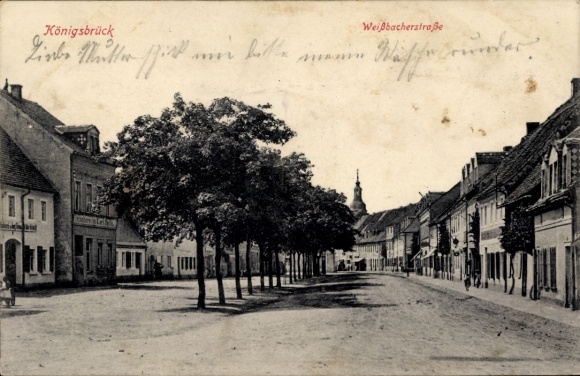 Königsbrück
Weißbacherstraße
Liebe Mutter schick mir bitte meine Wäsche wieder